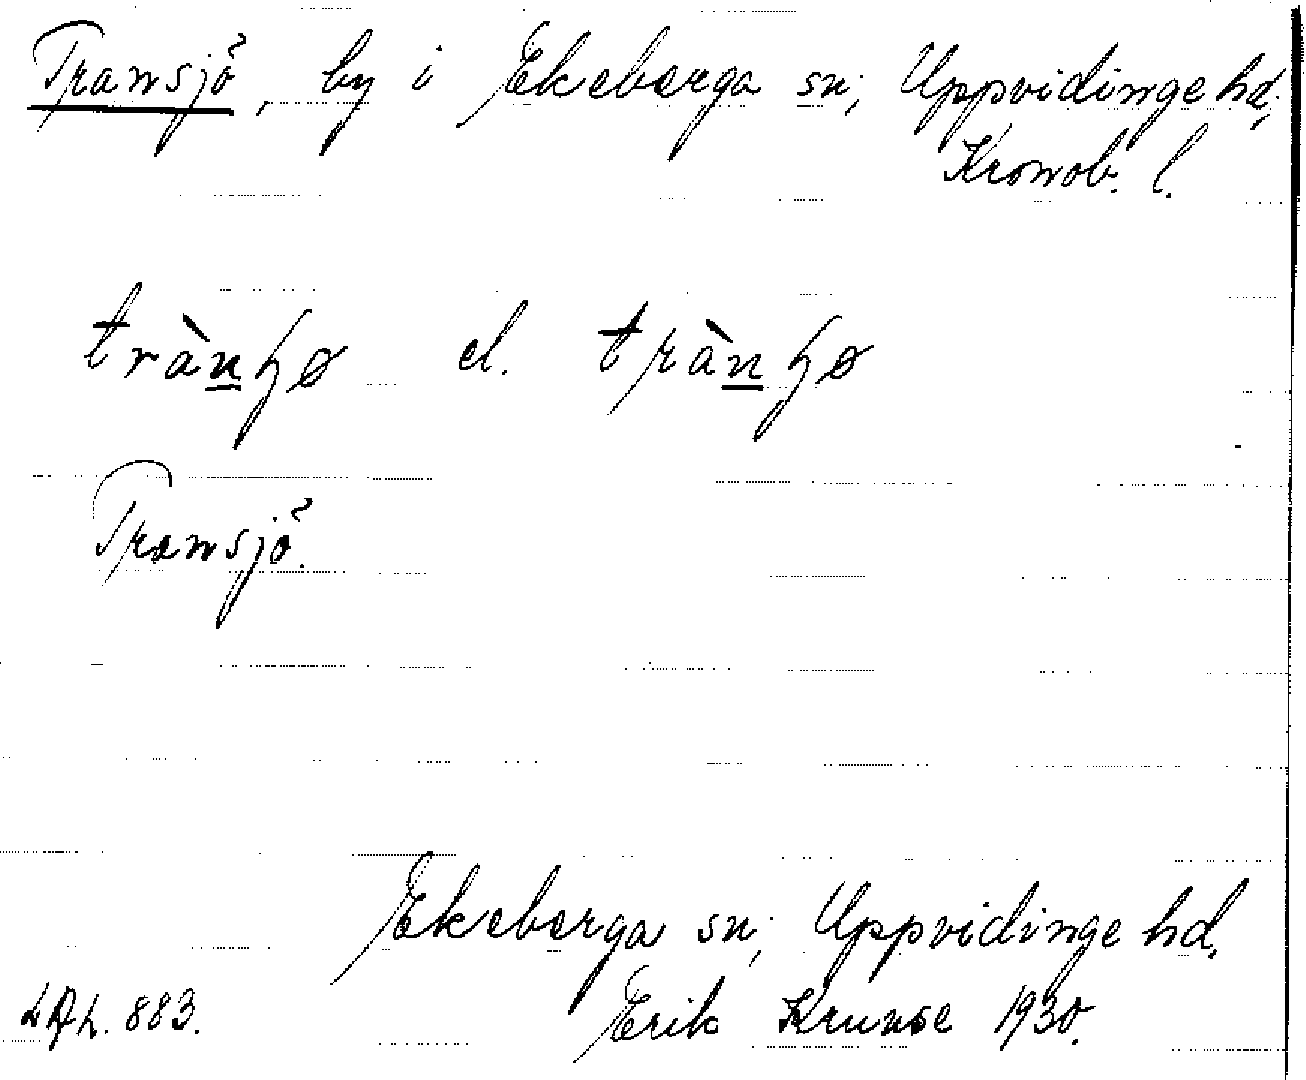 Transjö, by i Ekeberga sn; Uppvidinge hd,
Kronob. l.
trànɧø el. trànɧø
Transjö.
Ekeberga sn; Uppvidinge hd,
LAL. 883.
Erik Krunse 1930.